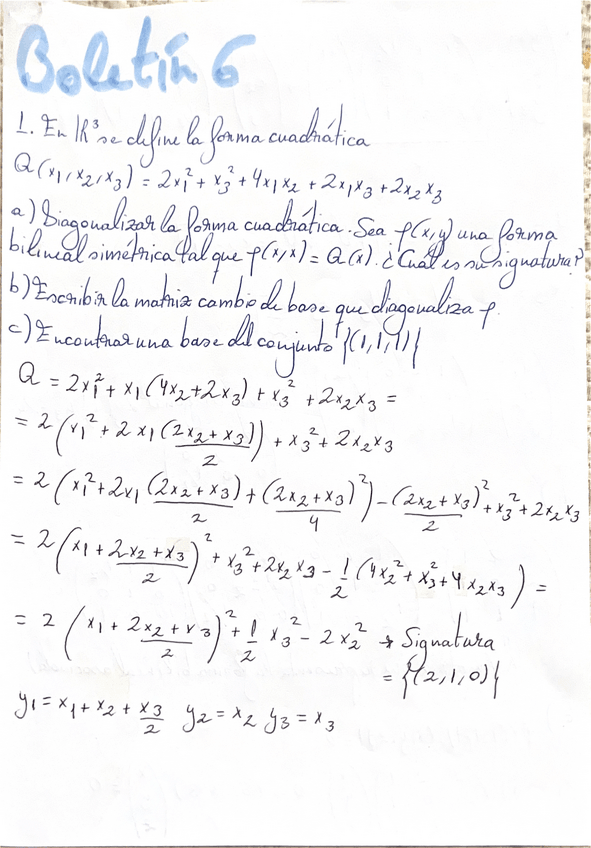 Boletín 6
1. En ℝ³ se define la forma cuadrática
Q(x₁,x₂,x₃) = 2x₁² + x₃² + 4x₁x₂ + 2x₁x₃ + 2x₂x₃
a) Diagonalizar la forma cuadrática. Sea φ(x,y) una forma
bilineal simétrica tal que φ(x,x) = Q(x). ¿Cuál es su signatura?
b) Escribir la matriz cambio de base que diagonaliza φ.
c) Encontrar una base del conjunto {(1,1,1)}
Q = 2x₁² + x₁(4x₂+2x₃) + x₃² + 2x₂x₃ =
= 2(x₁² + 2x₁(2x₂+x₃)/2) + x₃² + 2x₂x₃
= 2(x₁² + 2x₁(2x₂+x₃)/2 + (2x₂+x₃)²/4) - (2x₂+x₃)²/2 + x₃² + 2x₂x₃
= 2(x₁ + 2x₂+x₃/2)² + x₃² + 2x₂x₃ - 1/2(4x₂² + x₃² + 4x₂x₃) =
= 2(x₁ + 2x₂+x₃/2)² + 1/2 x₃² - 2x₂² → Signatura
= {(2,1,0)}
y₁ = x₁ + x₂ + x₃/2 y₂ = x₂ y₃ = x₃